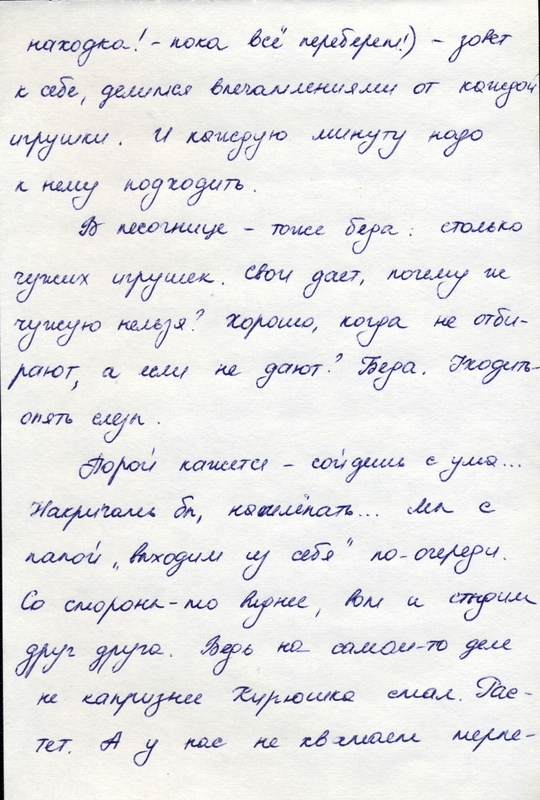 находка! - пока всё переберет!) - зовет
к себе, делится впечатлениями от каждой
игрушки. И каждую минуту надо
к нему подходить.
В песочнице - тоже беда: столько
чужих игрушек. Свои дает, почему же
чужую нельзя? Хорошо, когда не отби-
рают, а если не дают? Беда. Уходить-
опять слезы.
Порой кажется - сойдешь с ума...
Накричать бы, нашлёпать... Мы с
папой „выходим из себя" по-очереди.
Со стороны-то виднее, вот и стыдим
друг друга. Ведь на самом-то деле
не капризнее Кирюшка стал. Рас-
тет. А у нас не хватает терпе-